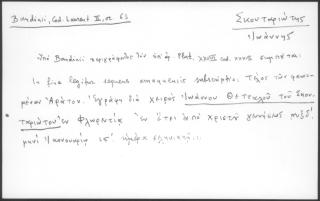 Bandini, Cod. Laurent II, σ. 63
Σκουταριώτης
Ἰωάννης
Ὑπὸ Bandini περιγράφεται ὑπ' ἀρ. Plut. XXVIII Cod. XXVII
In fine legitur sequens amanuensis subscriptio. Τέλος τῶν φαινο-
μένων Ἀράτου. Ἐγράφη διὰ χειρὸς Ἰωάννου Θετταλοῦ τοῦ Σκου-
ταριώτου ἐν Φλωρεντίᾳ ἐν ἔτει ἀπὸ Χριστοῦ γεννήσεως
μηνὶ Ἰανουαρίῳ ιε′ ἡμέρᾳ